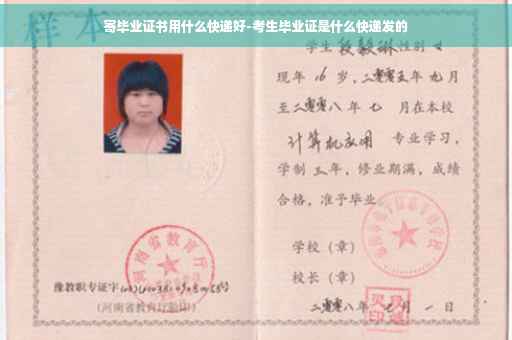 寄毕业证书用什么快递好-考生毕业证是什么快递发的
样本
学生 段毅琳 性别 女
现年 16 岁,二零零五年 九 月
至二零零八年 七 月在本校
计算机应用 专业学习,
学制 三 年,修业期满,成绩
合格,准予毕业
学校(章)
校长(章)
二零零八年 七 月 一 日
河南省教育厅
豫教职专证字
(河南省教育厅验印)